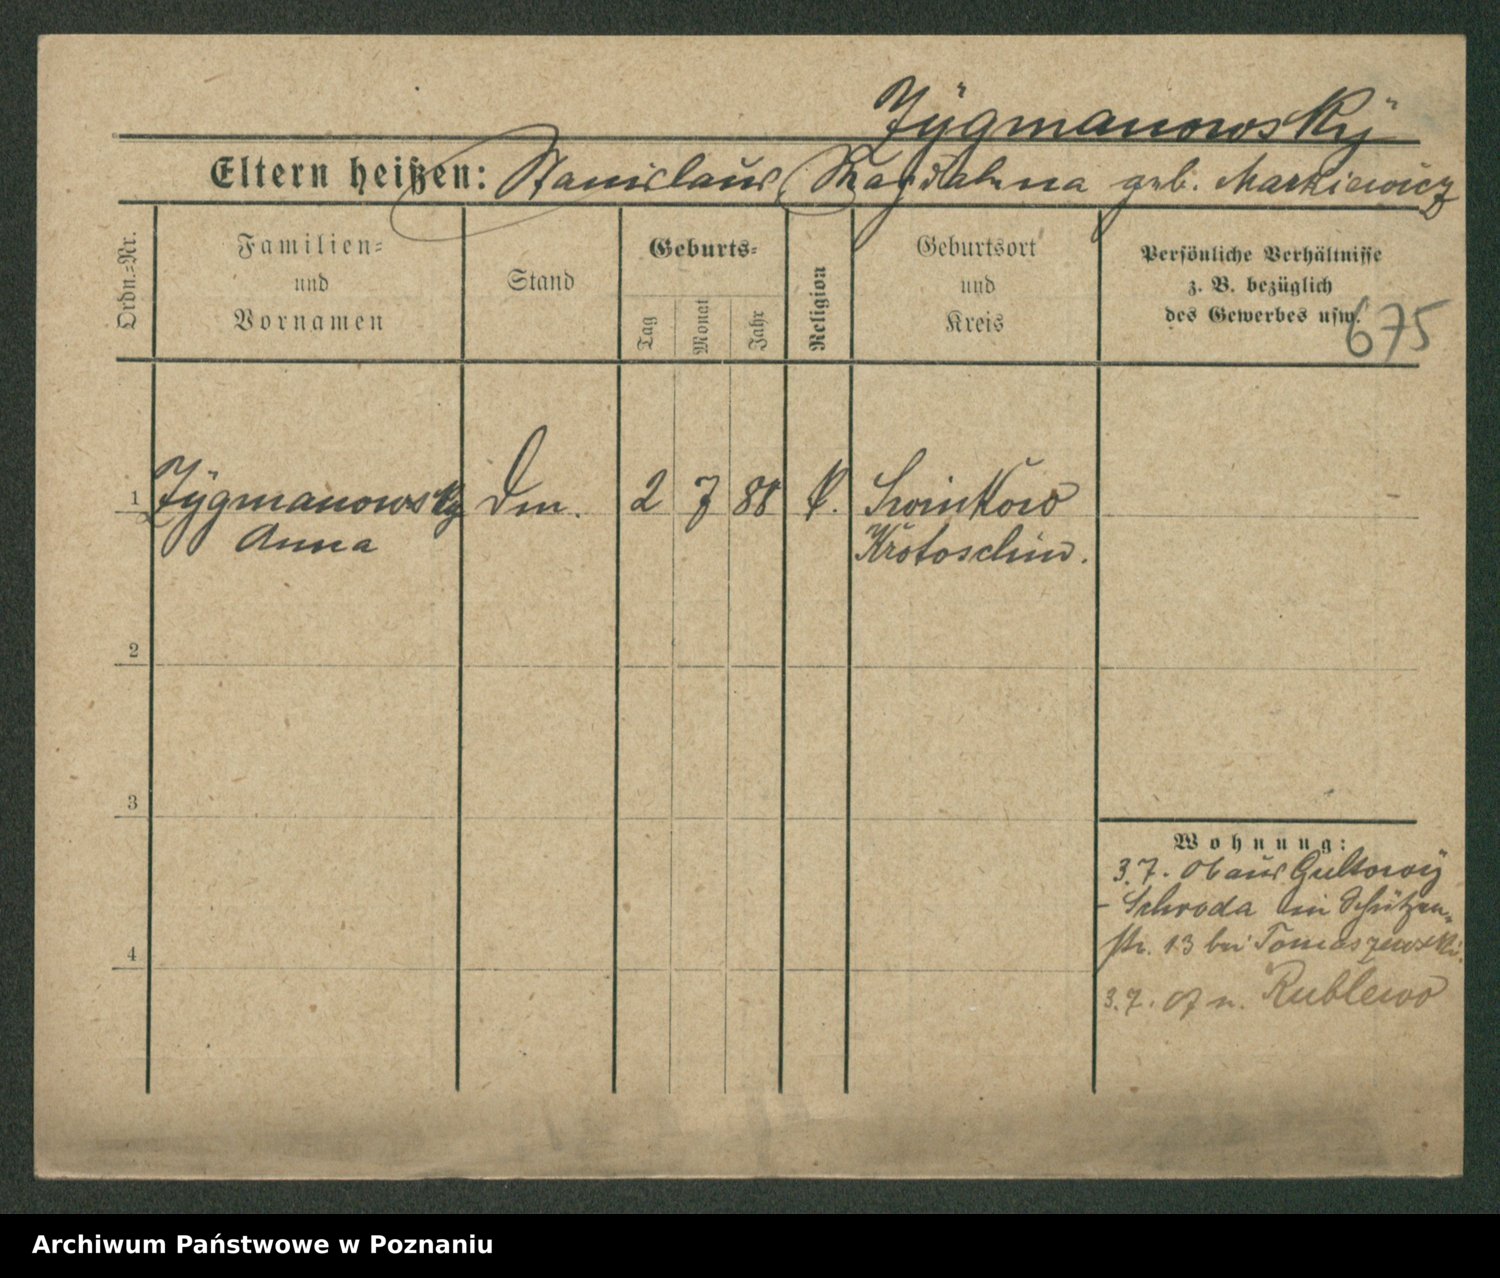 Zÿgmanowskÿ
Eltern heißen: Stanislaus Magdalena geb. Markiewicz
Ordn.=Nr.
Familien=
und
Vornamen
Stand
Geburts=
Tag
Monat
Jahr
Religion
Geburtsort
und
Kreis
Persönliche Verhältnisse
z. B. bezüglich
des Gewerbes usw.
675
1 Zÿgmanowsky 2 7 88 k. Swinkow
Anna Krotoschin.
2
3
4
Wohnung:
3.7. 06 aus Gultowÿ
- Schroda in Schützen-
str. 13 bei Tomaszewski.
3.7. 07 n. Rublewo
Archiwum Państwowe w Poznaniu